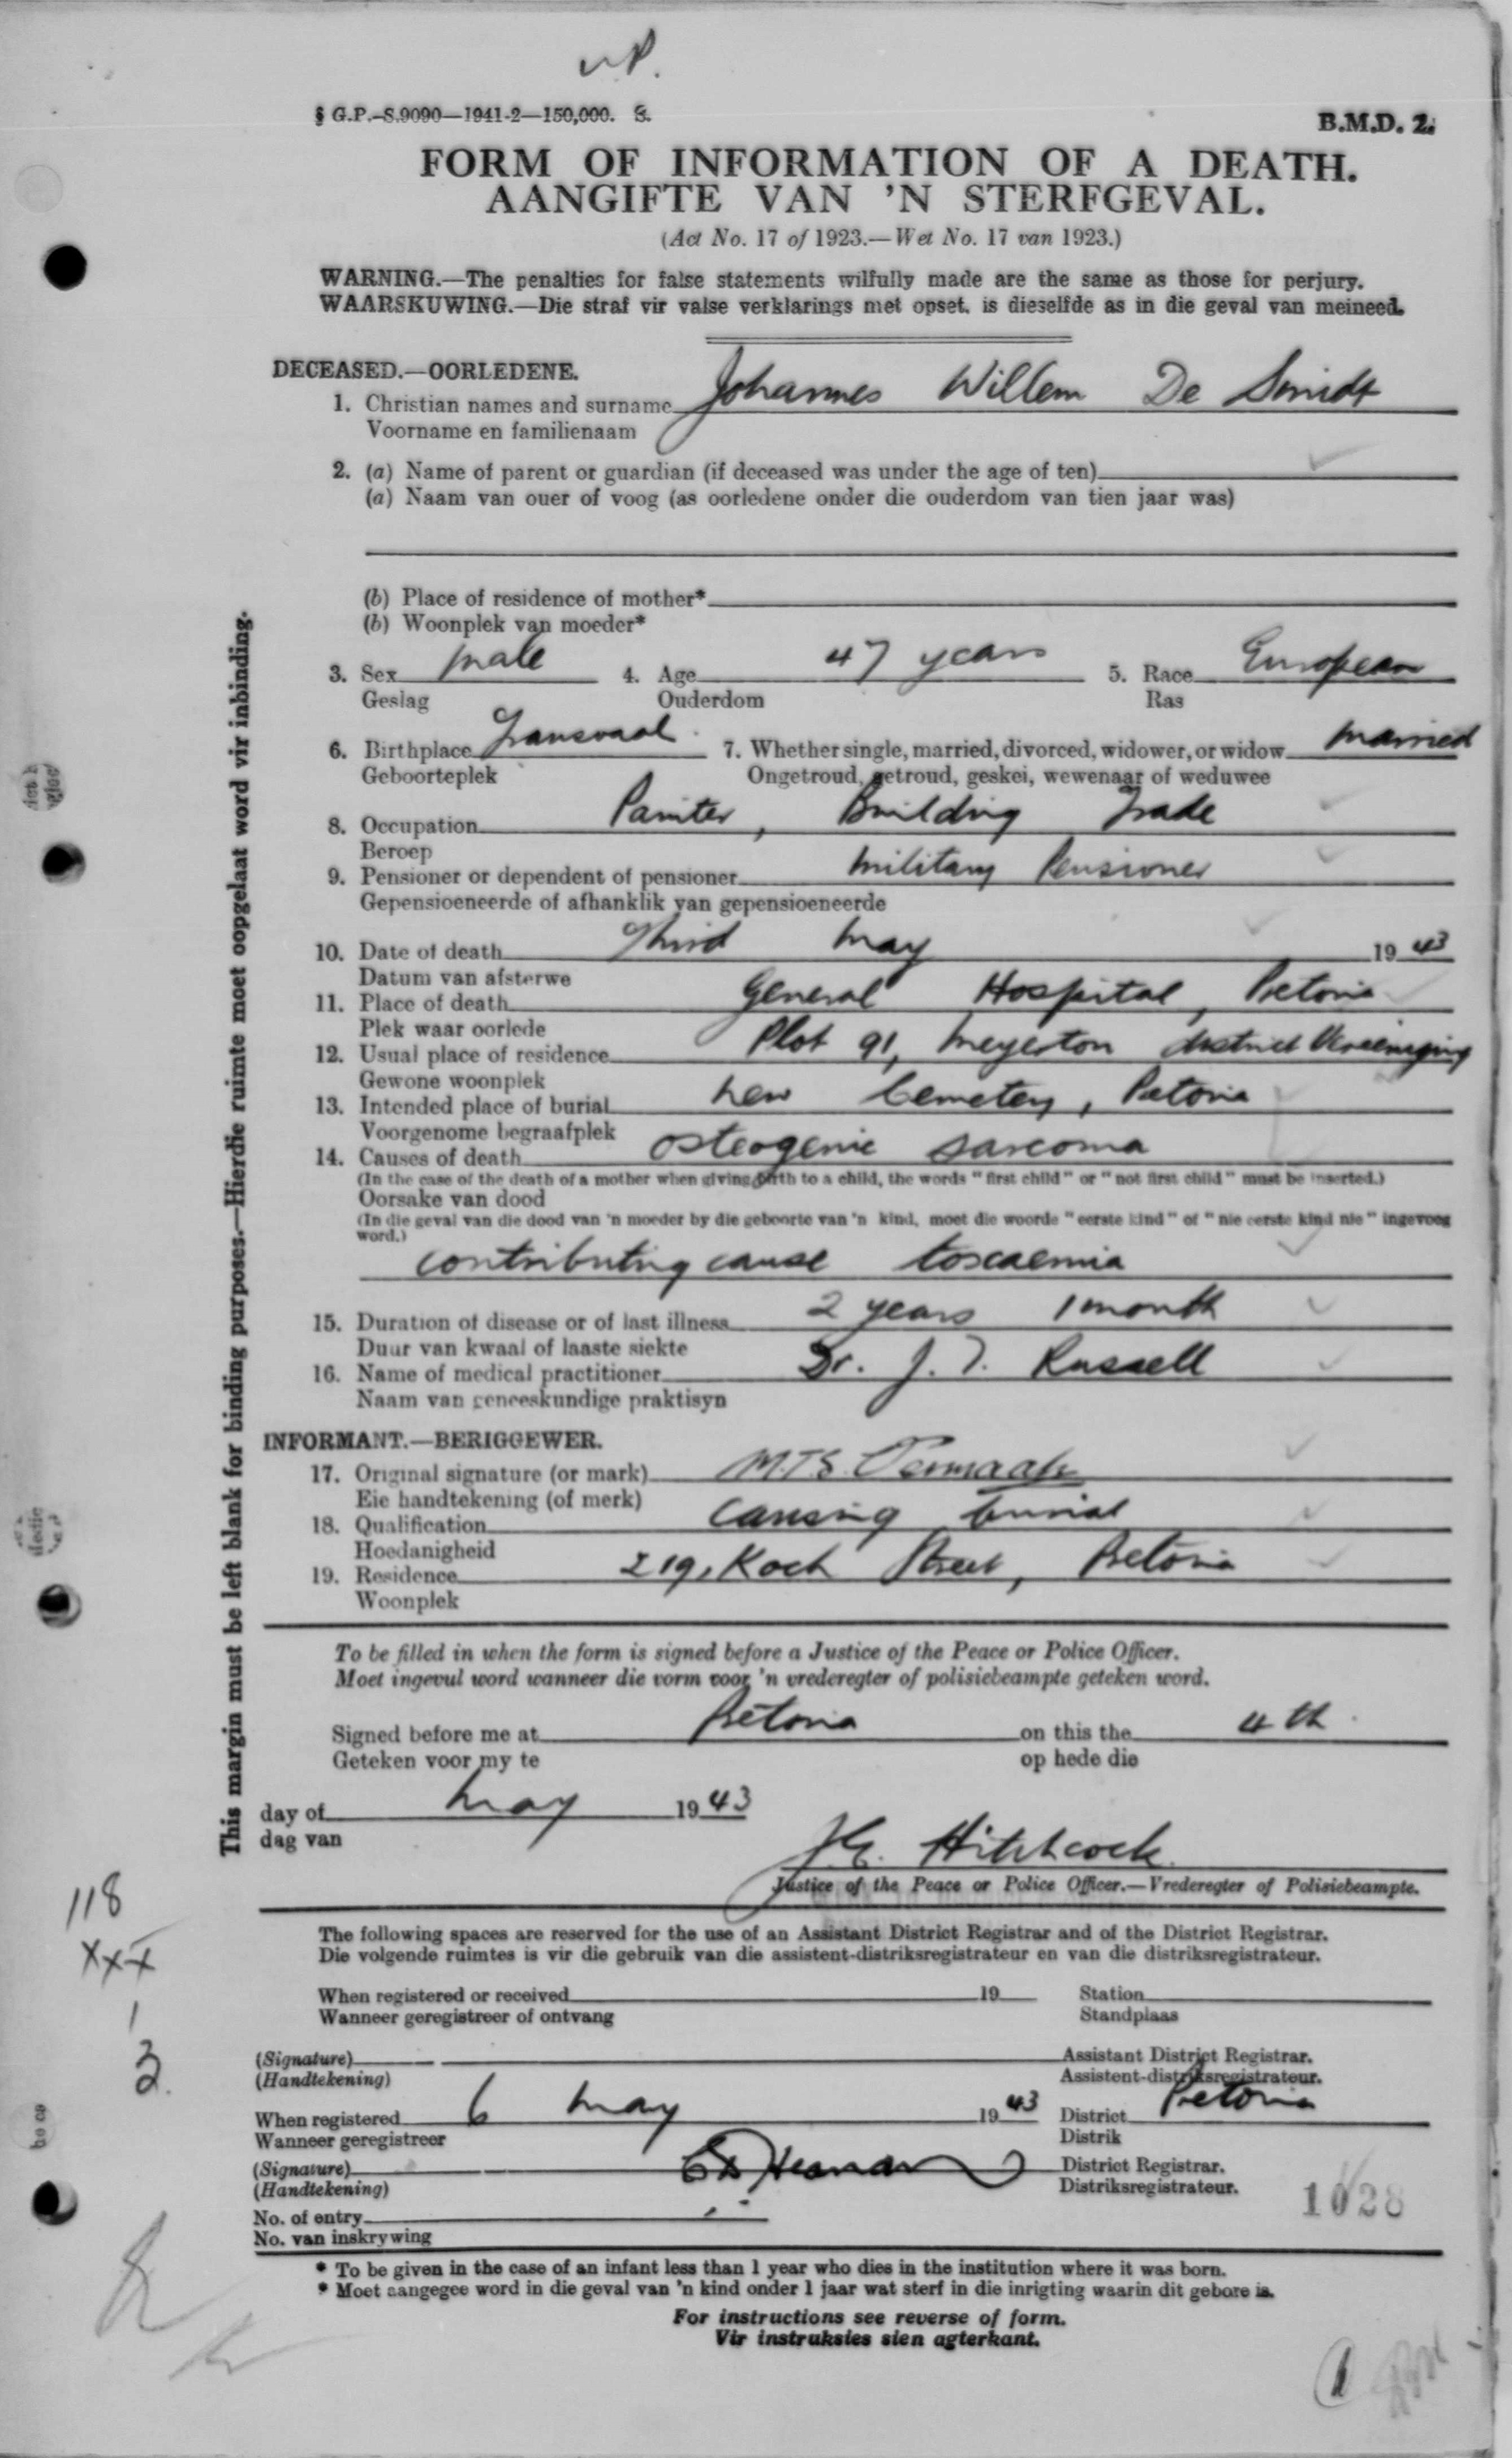 § G.P.-S.9090—1941-2—150,000. S.
B.M.D. 2.
FORM OF INFORMATION OF A DEATH.
AANGIFTE VAN 'N STERFGEVAL.
(Act No. 17 of 1923.—Wet No. 17 van 1923.)
WARNING.—The penalties for false statements wilfully made are the same as those for perjury.
WAARSKUWING.—Die straf vir valse verklarings met opset, is dieselfde as in die geval van meineed.
DECEASED.—OORLEDENE.
1. Christian names and surname Johannes Willem De Smidt
Voorname en familienaam
2. (a) Name of parent or guardian (if deceased was under the age of ten)
(a) Naam van ouer of voog (as oorledene onder die ouderdom van tien jaar was)
(b) Place of residence of mother*
(b) Woonplek van moeder*
3. Sex male 4. Age 47 years 5. Race European
Geslag Ouderdom Ras
6. Birthplace Transvaal. 7. Whether single, married, divorced, widower, or widow married
Geboorteplek Ongetroud, getroud, geskei, wewenaar of weduwee
8. Occupation Painter, Building Trade
Beroep
9. Pensioner or dependent of pensioner Military Pensioner
Gepensioeneerde of afhanklik van gepensioeneerde
10. Date of death Third May 1943
Datum van afsterwe
11. Place of death General Hospital, Pretoria
Plek waar oorlede
12. Usual place of residence Plot 91, Meyerton district Vereeniging
Gewone woonplek
13. Intended place of burial New Cemetery, Pretoria
Voorgenome begraafplek
14. Causes of death Osteogenic sarcoma
(In the case of the death of a mother when giving birth to a child, the words "first child" or "not first child" must be inserted.)
Oorsake van dood
(In die geval van die dood van 'n moeder by die geboorte van 'n kind, moet die woorde "eerste kind" of "nie eerste kind nie" ingevoeg
word.)
contributing cause toxaemia
15. Duration of disease or of last illness 2 years 1 month
Duur van kwaal of laaste siekte
16. Name of medical practitioner Dr. J. T. Russell
Naam van geneeskundige praktisyn
INFORMANT.—BERIGGEWER.
17. Original signature (or mark) M.T.S. Vermaak
Eie handtekening (of merk)
18. Qualification Causing burial
Hoedanigheid
19. Residence 219, Koch Street, Pretoria
Woonplek
To be filled in when the form is signed before a Justice of the Peace or Police Officer.
Moet ingevul word wanneer die vorm voor 'n vrederegter of polisiebeampte geteken word.
Signed before me at Pretoria on this the 4th.
Geteken voor my te op hede die
day of May 1943
dag van
Hitchcock.
Justice of the Peace or Police Officer.—Vrederegter of Polisiebeampte.
The following spaces are reserved for the use of an Assistant District Registrar and of the District Registrar.
Die volgende ruimtes is vir die gebruik van die assistent-distriksregistrateur en van die distriksregistrateur.
When registered or received 19 Station
Wanneer geregistreer of ontvang Standplaas
(Signature) Assistant District Registrar.
(Handtekening) Assistent-distriksregistrateur.
When registered 6 May 1943 District Pretoria
Wanneer geregistreer Distrik
(Signature) District Registrar.
(Handtekening) Distriksregistrateur.
1028
No. of entry
No. van inskrywing
* To be given in the case of an infant less than 1 year who dies in the institution where it was born.
* Moet aangegee word in die geval van 'n kind onder 1 jaar wat sterf in die inrigting waarin dit gebore is.
For instructions see reverse of form.
Vir instruksies sien agterkant.
This margin must be left blank for binding purposes.—Hierdie ruimte moet oopgelaat word vir inbinding.
118
XXX
1
3